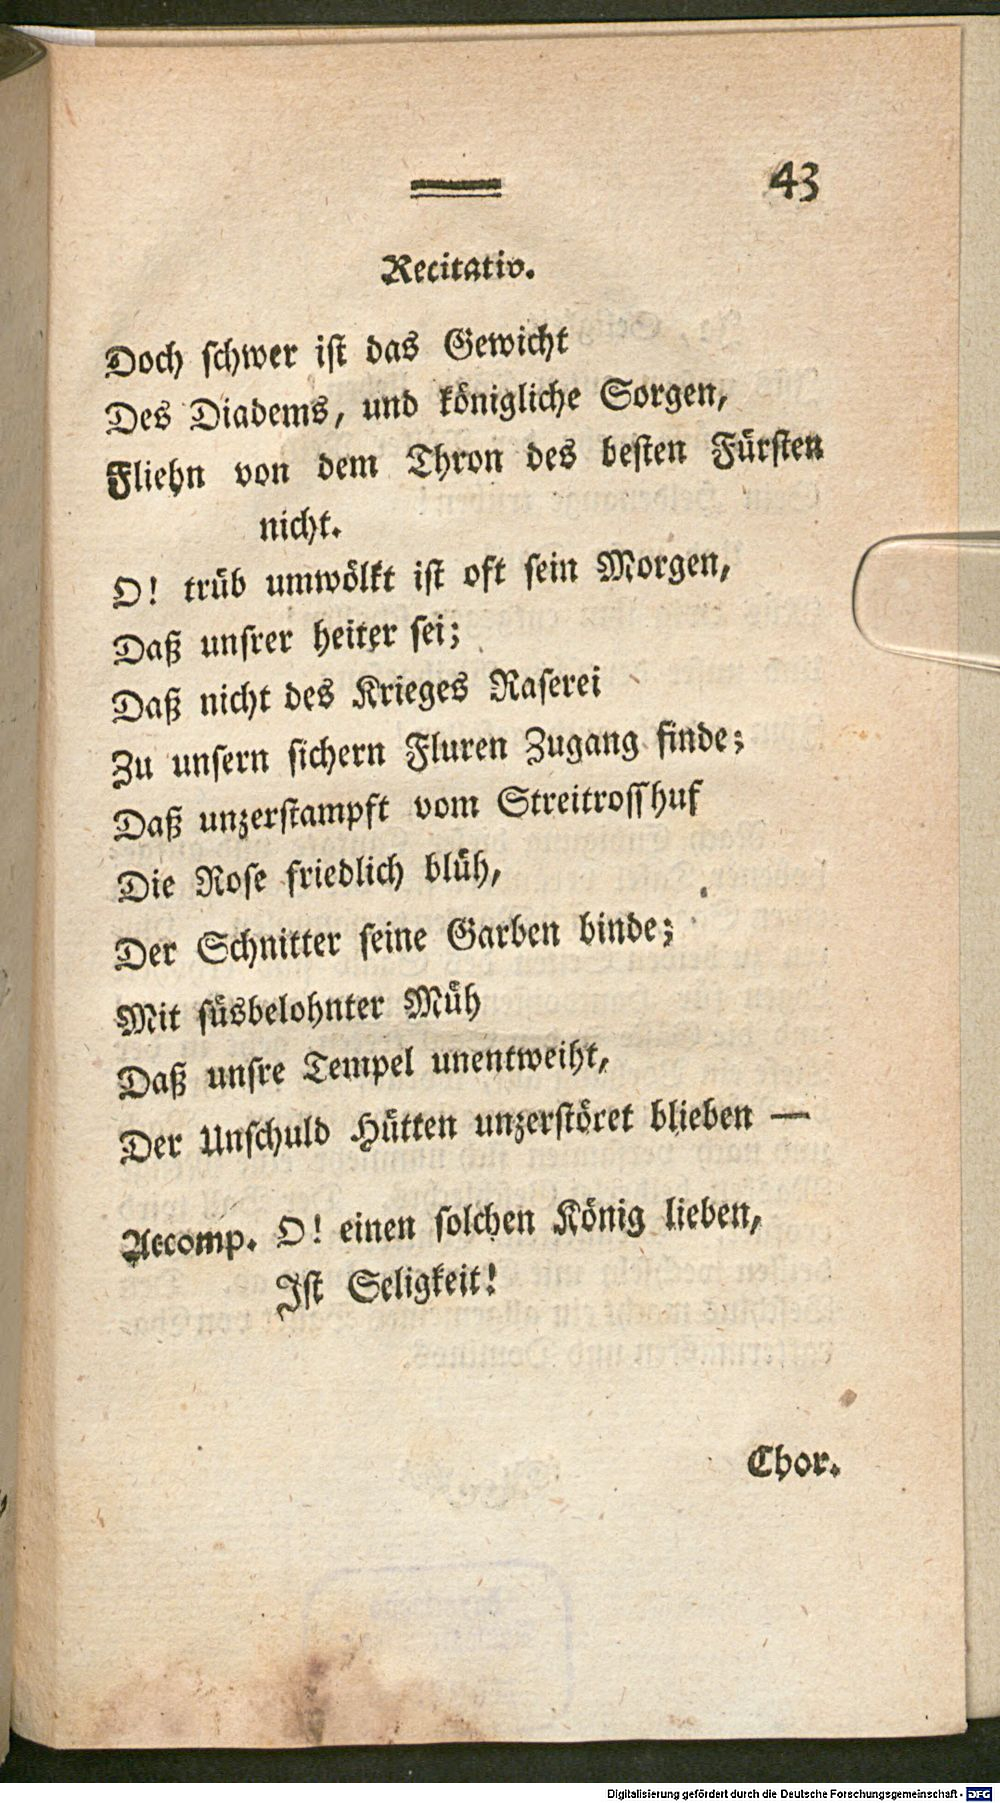 43
Recitativ.
Doch schwer ist das Gewicht
Des Diadems, und königliche Sorgen,
Fliehn von dem Thron des besten Fürsten
nicht.
O! trüb umwölkt ist oft sein Morgen,
Daß unsrer heiter sei;
Daß nicht des Krieges Raserei
Zu unsern sichern Fluren Zugang finde;
Daß unzerstampft vom Streitrosshuf
Die Rose friedlich blüh,
Der Schnitter seine Garben binde;
Mit süsbelohnter Müh
Daß unsre Tempel unentweiht,
Der Unschuld Hütten unzerstöret blieben —
Accomp. O! einen solchen König lieben,
Ist Seligkeit!
Chor.
Digitalisierung gefördert durch die Deutsche Forschungsgemeinschaft - DFG